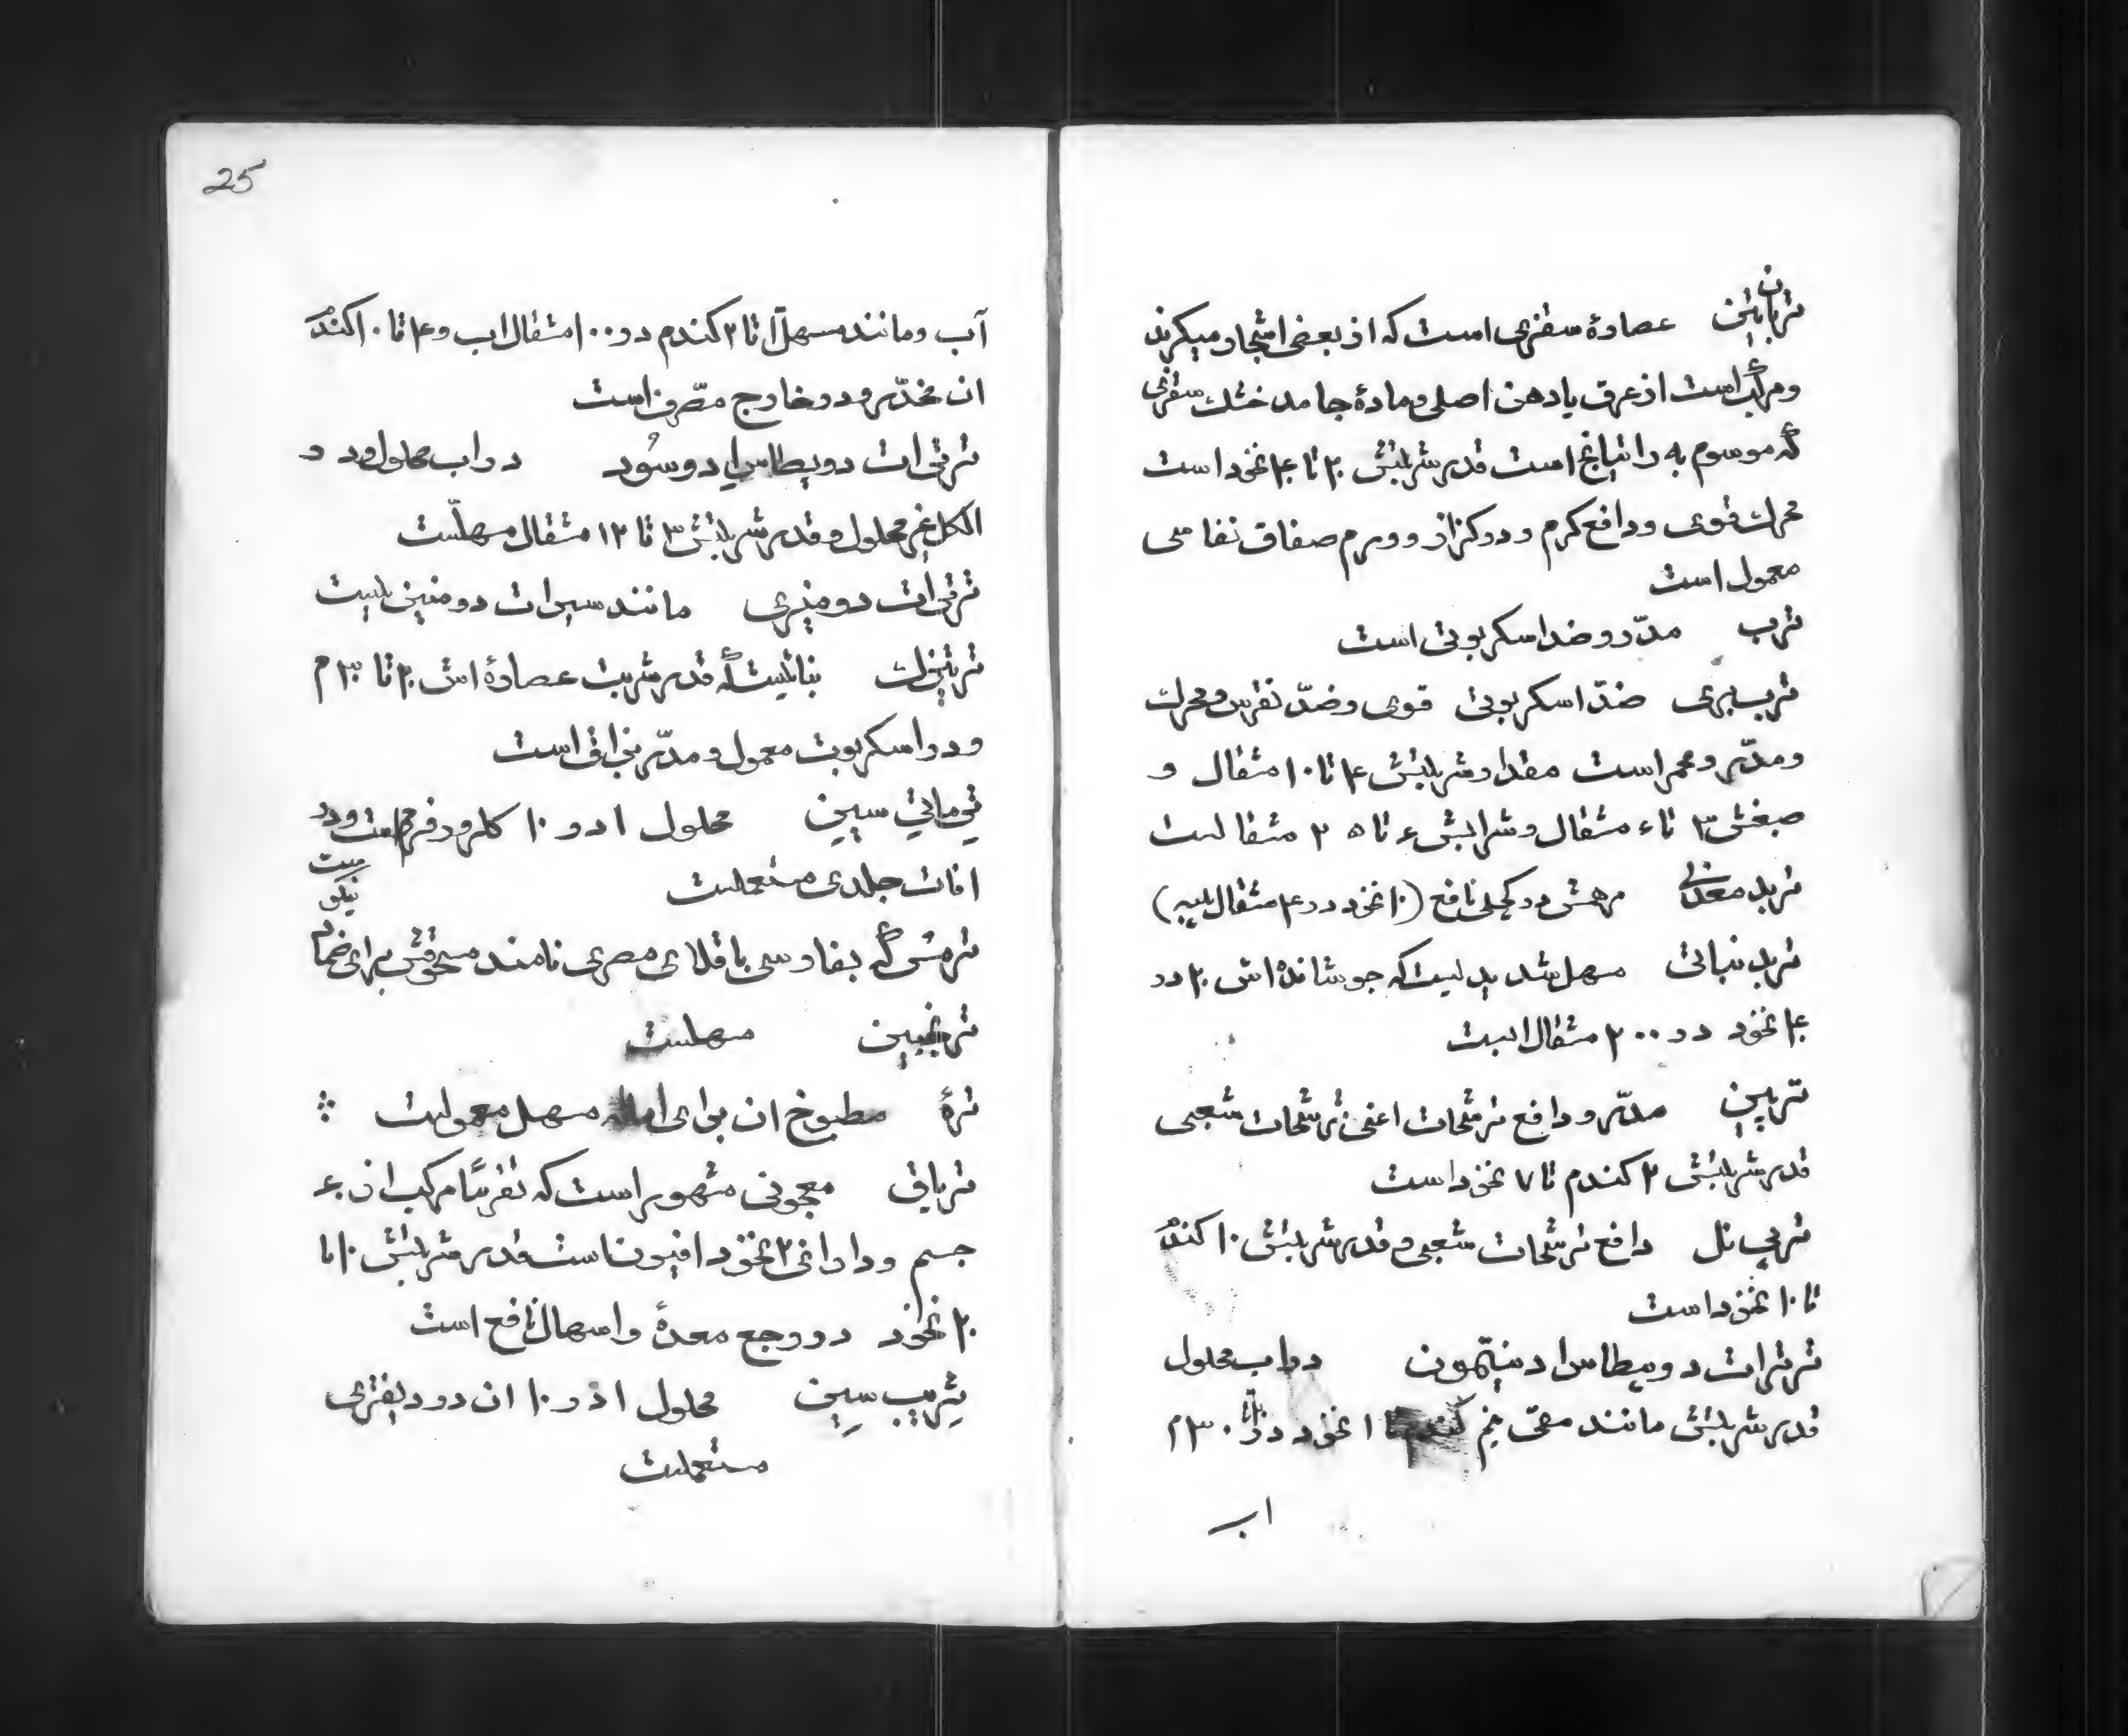 تربانتین عصارهٔ سقزی است که از بعضی اشجار میگیرند
و مرکب است از عرق یا دهن اصلی و مادهٔ جامد خشك سقزی
که موسوم به راتیانج است قدر شربتش ۲۰ تا ۴۰ نخود است
محرك قوی و دافع کرم و در کزاز و ورم صفاق نفاسی
معمول است
ترب مدّر و ضد اسکربوتی است
ترب بری ضدّ اسکربوتی قوی و ضدّ نقرس و محرك
و مدّر و محمر است مقدار شربتش ۴ تا ۱۰ مثقال و
صبغش ۳ تا ۶ مثقال و شرابش ۶ تا ۲۵ مثقالست
تربد معدنی مرهمش در کچلی نافع (۱۰ نخود در ۴ مثقال پیه)
تربد نباتی مسهل شدیدیست که جوشانده اش ۲۰ در
۴۰ نخود در ۲۰۰ مثقال ابست
ترپین مدّر و دافع ترشحات اعنی ترشحات شعبی
قدر شربتش ۲ کندم تا ۷ نخود است
ترپی نل دافع ترشحات شعبی و قدر شربتش ۱۰ کندم
تا ۱۰ نخود است
ترترات دوپطاس ادنتیمون در اب محلول
قدر شربتش مانند مقی نیم کندم تا ۱ نخود در ۳۰ م
اب
25
آب و مانند مسهل ۱ تا ۲ کندم در ۱۰۰ مثقال اب و ۴ تا ۱۰ کندم
ان مخدّر و در خارج مصّرف است
ترترات دوپطاس ادوسود در اب محلول و در
الکل غیر محلول و قدر شربتش ۳ تا ۱۲ مثقال مسهلّست
ترترات دومنیزی مانند سیترات دومنیزیست
نباتیست که قدر شربت عصارهٔ اش ۲۰ تا ۳۰ م
و در اسکربوت معمول و مدّر است
محلول ۱ در ۱۰
افات جلدی مستعملست
نیکو
ترمس که بفارسی باقلای مصری نامند مسحوقش برای ضماد
ترنجبین مسهلست
ترهٔ مطبوخ ان برای اماله مسهل معمولست
تریاق معجونی مشهور است که تقریبًا مرکب از ۶۰
جسم و دارای ۲ نخود افیونست قدر شربتش ۱۰ تا
۲۰ نخود در وجع معدهٔ و اسهال نافع است
تریپسین محلول ۱ در ۱۰ ان در دیفتری
مستعملست